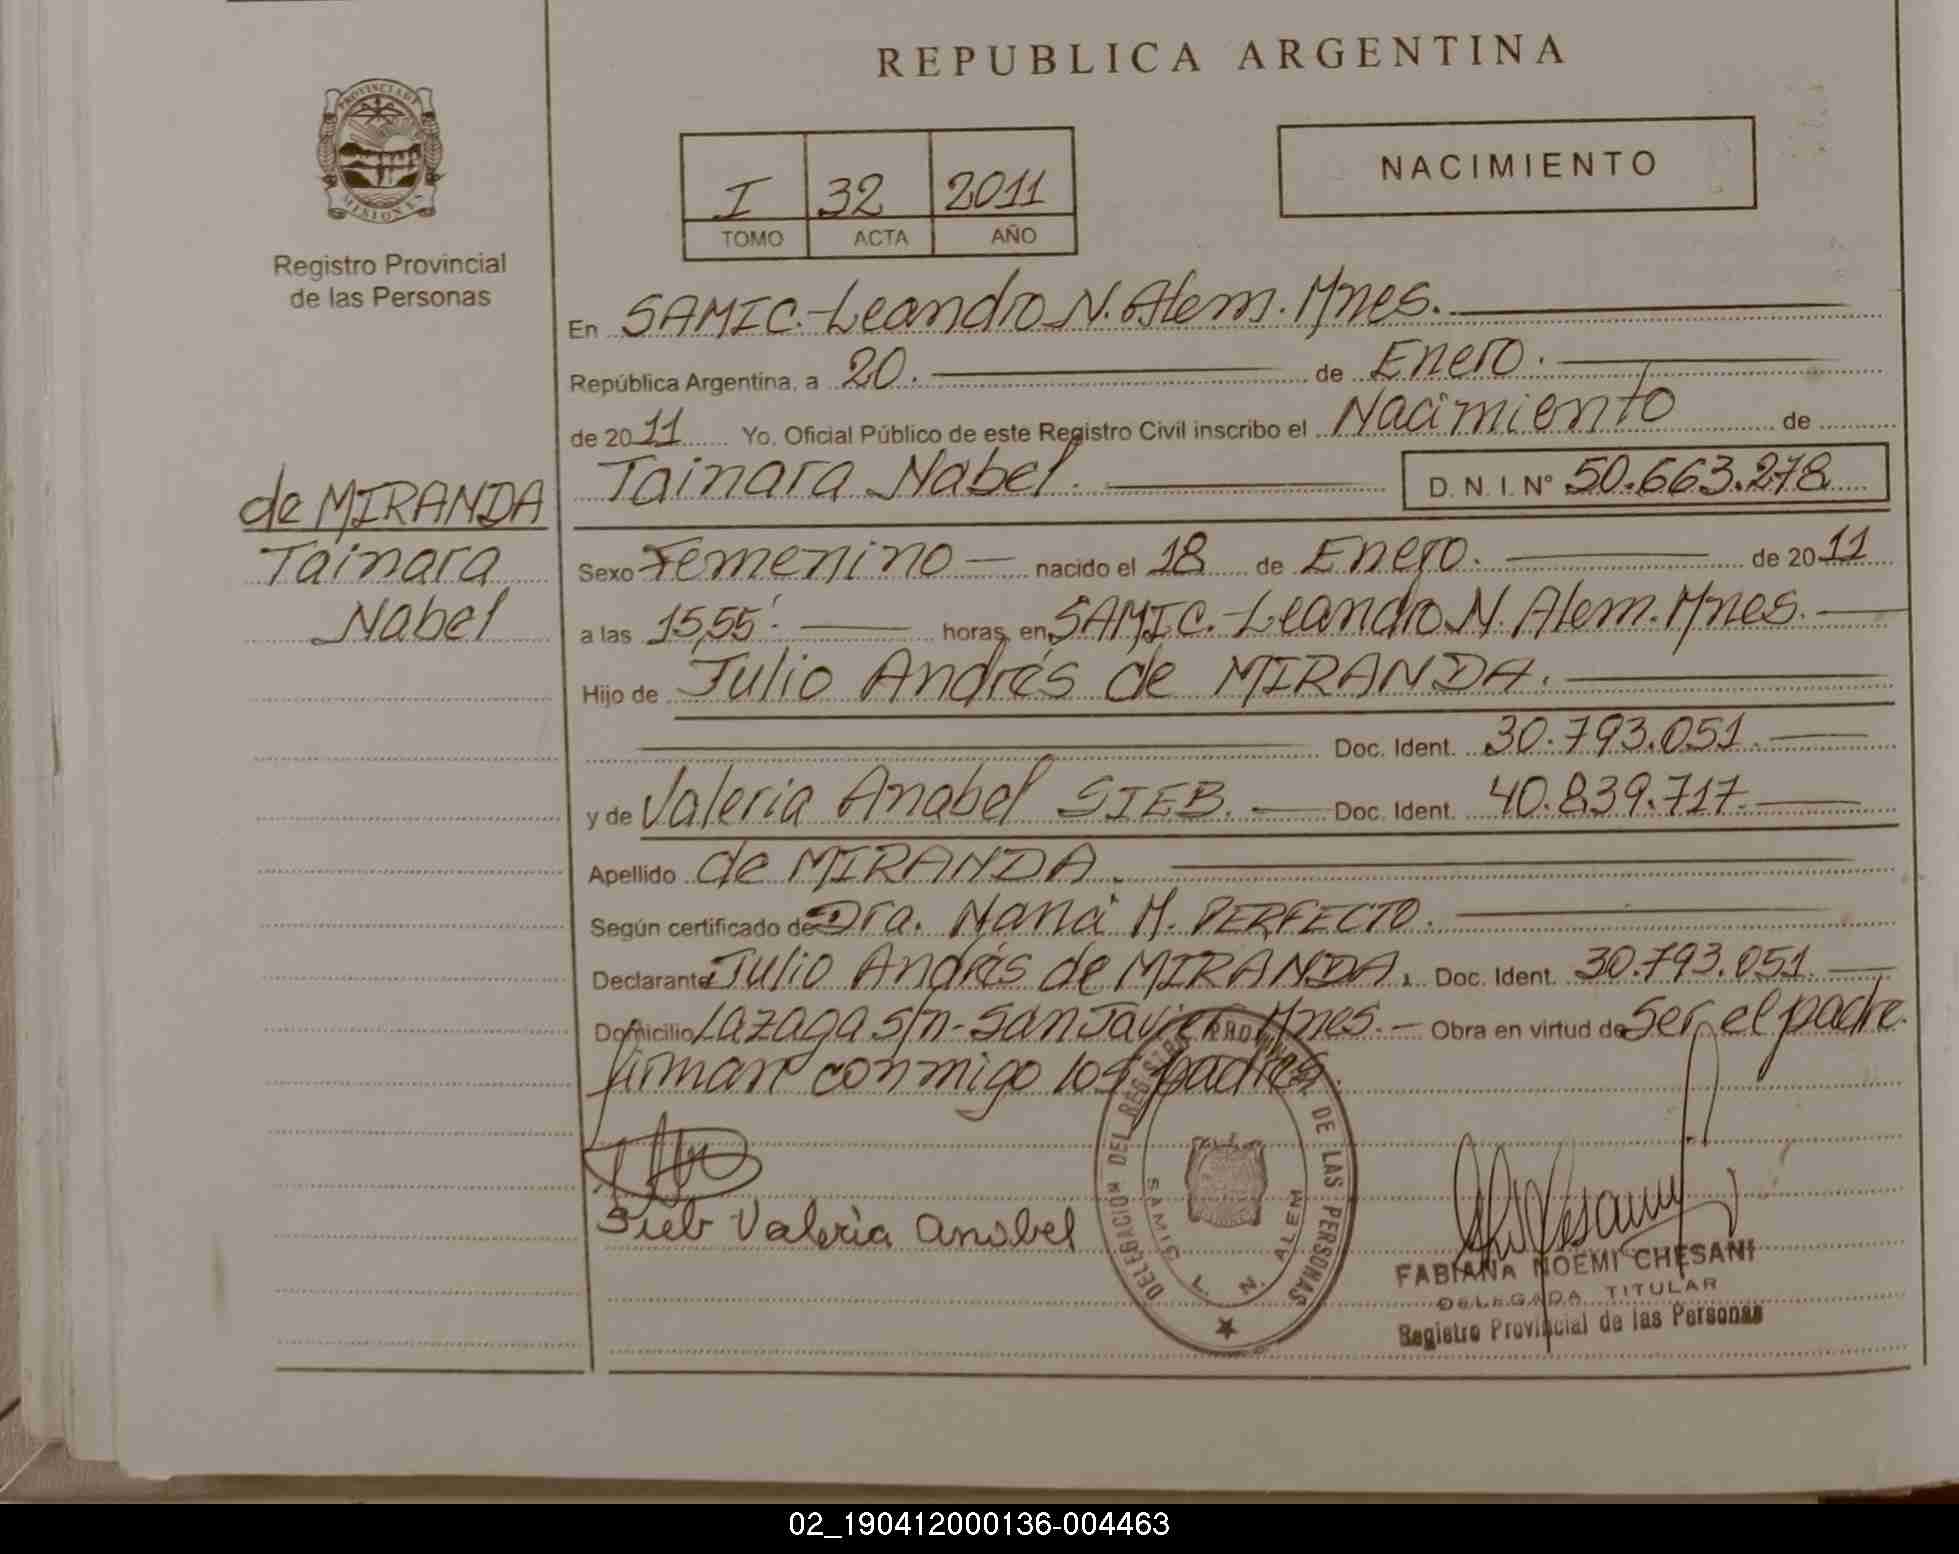 REPUBLICA ARGENTINA
PROVINCIA DE MISIONES
Registro Provincial
de las Personas
NACIMIENTO
I 32 2011
TOMO ACTA AÑO
En SAMIC.-Leandro N. Alem. Mnes.
República Argentina, a 20. de Enero.
de 2011 Yo, Oficial Público de este Registro Civil inscribo el Nacimiento de
Tainara Nabel. D. N. I. N° 50.663.278
de MIRANDA
Tainara
Nabel
Sexo Femenino nacido el 18 de Enero. de 2011
a las 15,55' horas, en SAMIC.-Leandro N. Alem. Mnes.
Hijo de Julio Andrés de MIRANDA.
Doc. Ident. 30.793.051.
y de Valeria Anabel SIEB. Doc. Ident. 40.839.717.
Apellido de MIRANDA.
Según certificado de Dra. Nanci M. PERFECTO.
Declarante Julio Andrés de MIRANDA. Doc. Ident. 30.793.051.
Domicilio Lazaga s/n-San Javier Mnes. Obra en virtud de Ser el padre.
firman conmigo los padres.
Sieb Valeria anabel
DELEGACION DEL REGISTRO PROV. DE LAS PERSONAS
SAMIC L. N. ALEM
FABIANA NOEMI CHESANI
DELEGADA TITULAR
Registro Provincial de las Personas
02_190412000136-004463